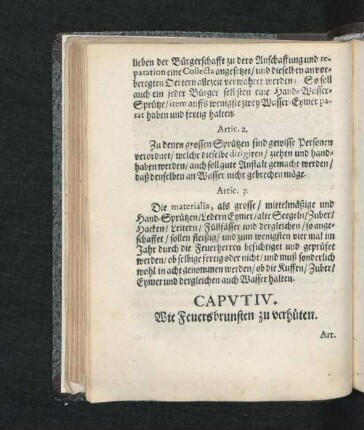 lieben der Bürgerschafft zu dero Anschaffung und re-
paration eine Collecta angesetzet / und dieselben an vor-
beregten Oertern allezeit verwahret werden: So soll
auch ein jeder Bürger selbsten eine Hand-Wasser-
Sprütze / item auffs wenigste zwey Wasser-Eymer pa-
rat haben und fertig halten.
Artic. 2.
Zu denen grossen Sprützen sind gewisse Personen
verordnet / welche dieselbe dirigiren / ziehen und hand-
haben werden / auch soll gute Anstalt gemacht werden /
daß denselben an Wasser nicht gebrechen möge.
Artic. 3.
Die materialia, als grosse / mittelmäßige und
Hand-Sprützen / Ledern Eymer / alte Seegeln / Zuber /
Hacken / Leitern / Füllfässer und dergleichen / so ange-
schaffet / sollen fleißig / und zum wenigsten vier mal im
Jahr durch die Feuerherren besichtiget und geprüfet
werden / ob selbige fertig oder nicht / und muß sonderlich
wohl in acht genommen werden / ob die Kuffen / Zuber /
Eymer und dergleichen auch Wasser halten.
CAPUT IV.
Wie Feuersbrunsten zu verhüten.
Art.